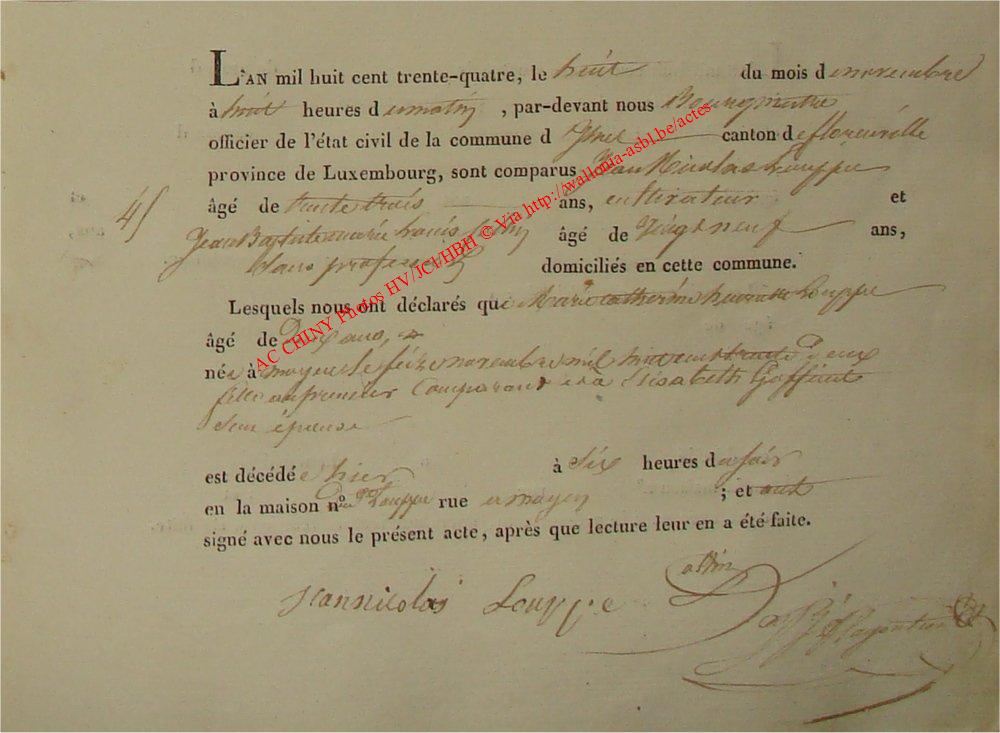 L'AN mil huit cent trente-quatre, le huit du mois de novembre
à huit heures du matin, par-devant nous Bourgmestre
officier de l'état civil de la commune d canton de florenville
province de Luxembourg, sont comparus Jean Nicolas Louppe
âgé de trente trois ans, cultivateur et
45
Jean Baptiste marie âgé de vingt neuf ans,
sans profession domiciliés en cette commune.
Lesquels nous ont déclarés que Marie catherine Louppe
âgé de ans,
née à moyen le seize novembre mil huit cent trente deux
fille au premier Comparant et à Elisabeth Goffinet
son épouse
est décédée hier à six heures du soir
en la maison n° Louppe rue a moyen ; et ont
signé avec nous le présent acte, après que lecture leur en a été faite.
Jean nicolas Louppe
AC CHINY Photos HV/JCl/HBH © Via http://wallonia-asbl.be/actes